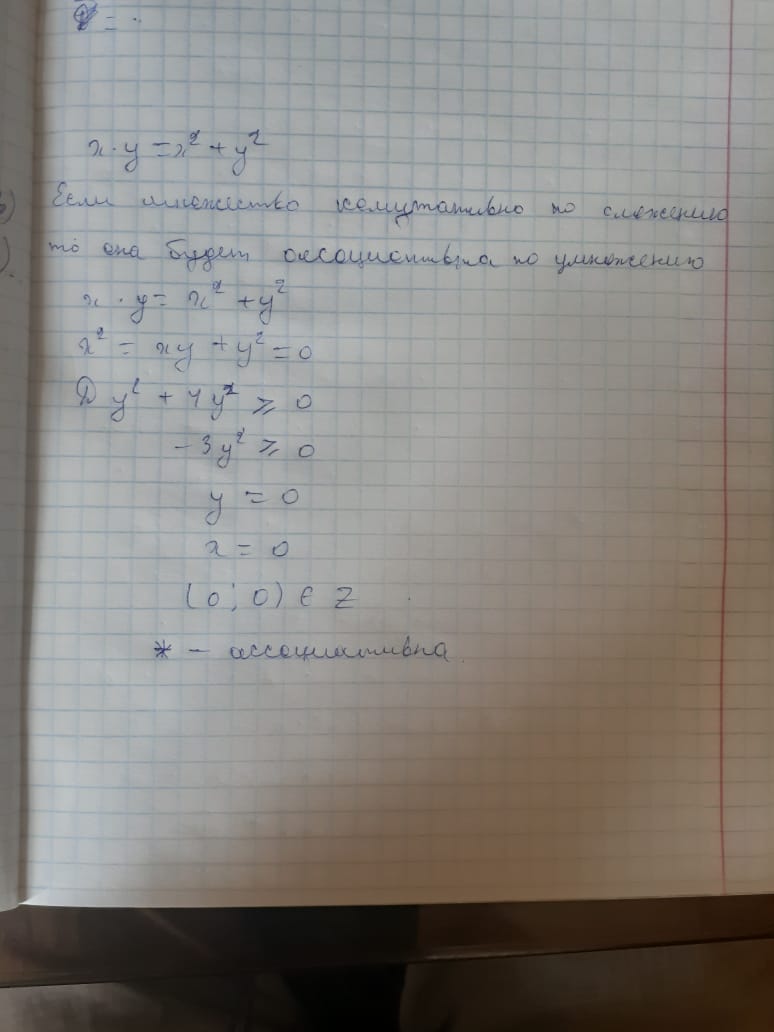 = .
x · y = x² + y²
Если множество комутативно по сложению
то она будет ассоциативна по умножению
x · y = x² + y²
x² = xy + y² = 0
D y² + 4y² ≥ 0
- 3y² ≥ 0
y = 0
x = 0
(0; 0) ∈ Z
* - ассоциативна.